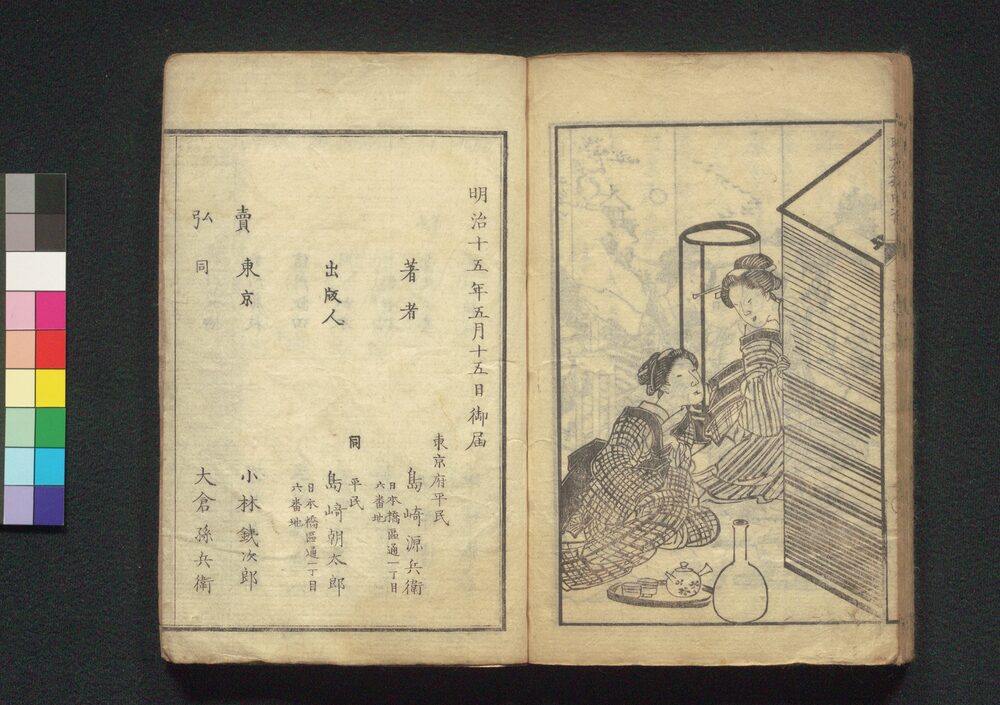 明治十五年五月十五日御届
東京府平民
著者 島崎源兵衛
日本橋區通一丁目
六番地
同 平民
出版人 島崎朝太郎
日本橋區通一丁目
六番地
賣 東京 小林鉄次郎
弘 同 大倉孫兵衛